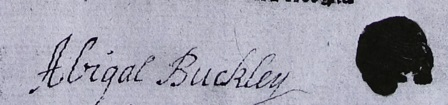 Abigal Buckley